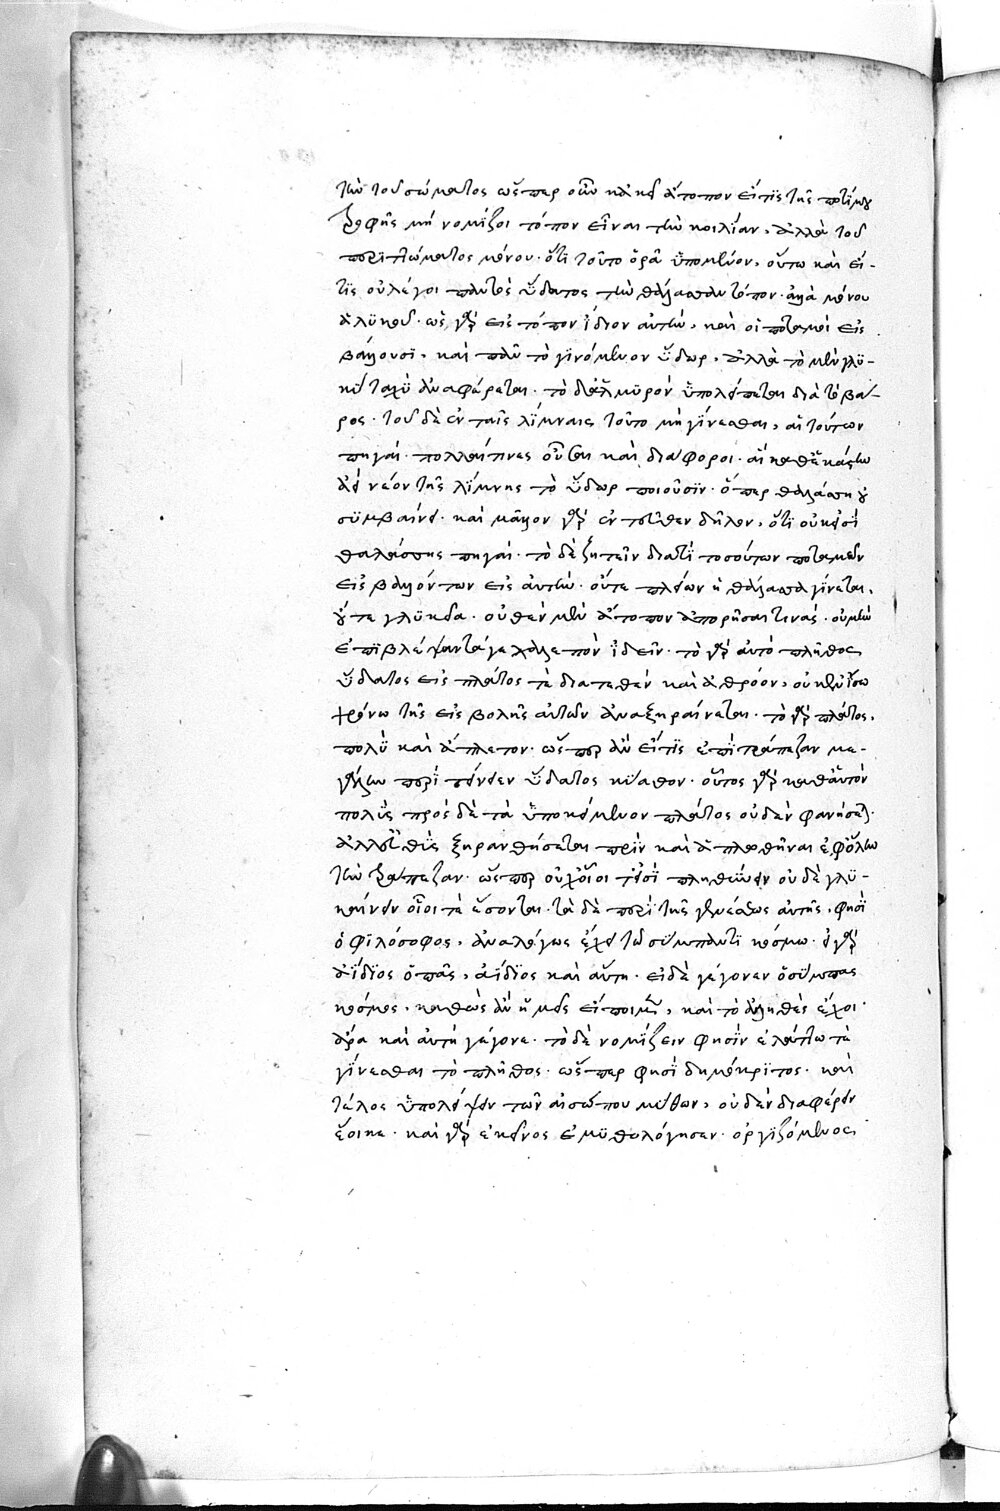 τὴν τοῦ σώματος ὥσπερ οὖν κἀκεῖ ἄτοπον εἴ τις τῆς ποτίμου
τροφῆς μὴ νομίζοι τόπον εἶναι τὴν κοιλίαν, ἀλλὰ τοῦ
περιττώματος μόνου· ὅτι τοῦτο ὁρᾷ ὑπομένον, οὕτω καὶ εἴ-
τις οὐ λέγοι παντὸς ὕδατος τὴν θάλασσαν τόπον· ἀλλὰ μόνου
ἁλυκοῦ· ὡς γὰρ εἰς τόπον ἴδιον αὐτὴν, καὶ οἱ ποταμοὶ εἰσ
βάλλουσι, καὶ πᾶν τὸ γινόμενον ὕδωρ, ἀλλὰ τὸ μὲν γλυ-
κὺ ταχὺ ἀναφέρεται· τὸ δὲ ἁλμυρὸν ὑπολείπεται διὰ τὸ βά-
ρος· τοῦ δὲ ἐν ταῖς λίμναις τοῦτο μὴ γίνεσθαι, αἱ τούτων
πηγαί· πολλαί τινες οὖσαι καὶ διάφοροι· αἳ καθ' ἑκάστην
ἀεὶ νέον τῆς λίμνης τὸ ὕδωρ ποιοῦσιν· ὅπερ θαλάσσῃ οὐ
συμβαίνει· καὶ μᾶλλον γὰρ ἐντεῦθεν δῆλον, ὅτι οὐκ εἰσὶ
θαλάσσης πηγαί· τὸ δὲ ζητεῖν διατί τοσούτων ποταμῶν
εἰσβαλλόντων εἰς αὐτὴν· οὔτε πλείων ἡ θάλασσα γίνεται,
οὔτε γλυκεῖα· οὐθὲν μὲν ἄτοπον ἀπορῆσαι τινάς· οὐ μὴν
ἐπιβλέψαντά γε χαλεπὸν ἰδεῖν· τὸ γὰρ αὐτὸ πλῆθος
ὕδατος εἰς πλάτος τε διαταθὲν καὶ ἀθρόον, οὐκ ἐν ἴσῳ
χρόνῳ τῆς εἰσβολῆς αὐτῶν ἀναξηραίνεται· τὸ γὰρ πλάτος,
πολὺ καὶ ἄπλετον· ὥσπερ ἂν εἴ τις ἐπὶ τράπεζαν με-
γάλην περιτείνειεν ὕδατος κύαθον· οὗτος γὰρ καθ' αὑτὸν
πολὺς πρὸς δὲ τὸ ὑποκείμενον πλάτος οὐδὲν φανήσεται·
ξηρανθήσεται πρὶν καὶ ἁπλωθῆναι ἐφ' ὅλην
τὴν τράπεζαν· ὥσπερ οὐχ οἷοί τέ εἰσι πληθύνειν οὐδὲ γλυ-
καίνειν οἷοί τε ἔσονται· τὰ δὲ περὶ τῆς γενέσεως αὐτῆς, φησὶ
ὁ φιλόσοφος, ἀναλόγως ἔχει τῷ σύμπαντι κόσμῳ· εἰ γὰρ
ἀΐδιος ὁ πᾶς, ἀΐδιος καὶ αὕτη· εἰ δὲ γέγονεν ὁ σύμπας
κόσμος, καθὼς ἂν ἡμεῖς εἴποιμεν, καὶ τὸ ἀληθὲς ἔχοι·
ἄρα καὶ αὐτὴ γέγονε· τὸ δὲ νομίζειν φησὶν ἐλάττω τε
γίνεσθαι τὸ πλῆθος· ὥσπερ φησὶ δημόκριτος· καὶ
τέλος ὑπολείψειν τῶν αἰσώπου μύθων, οὐδὲν διαφέρειν
ἔοικε· καὶ γὰρ ἐκεῖνος ἐμυθολόγησεν· ὀργιζόμενος